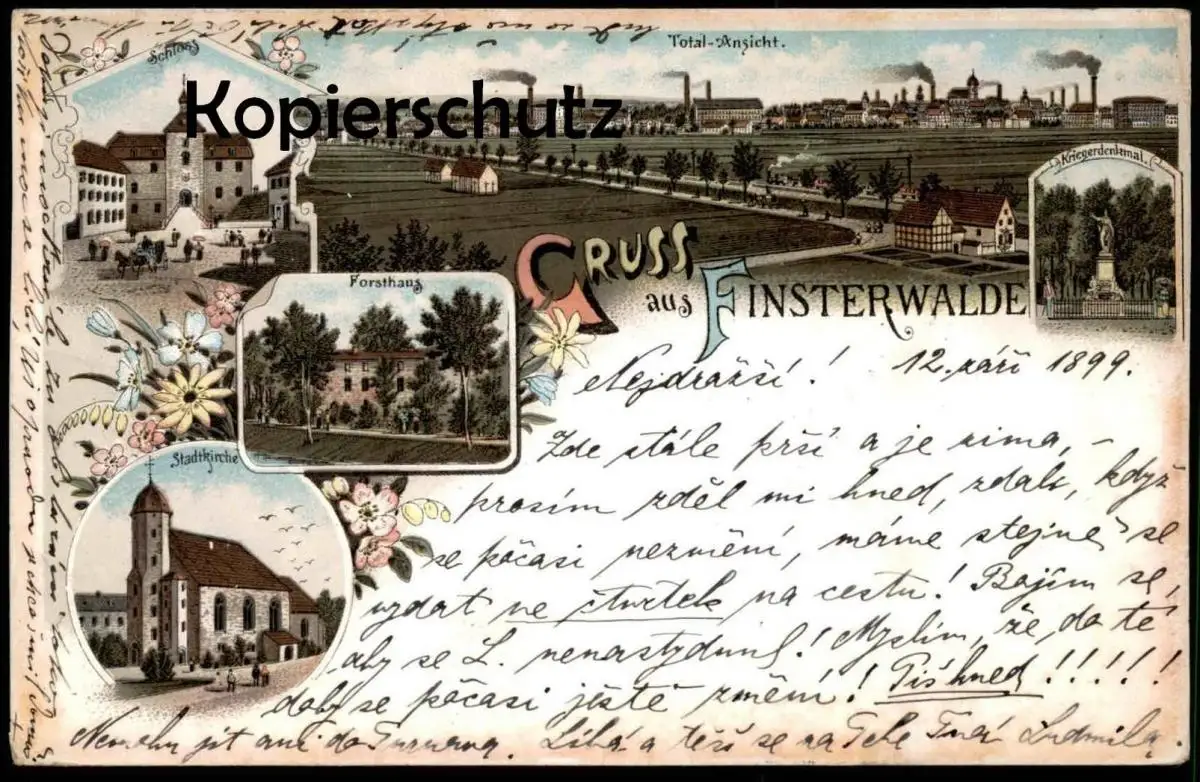 Kopierschutz
Schloss
Total-Ansicht.
Kriegerdenkmal.
Forsthaus
Stadtkirche
GRUSS
aus FINSTERWALDE
Nejdražší! 12. září 1899.
Zde stále prší a je zima, –
prosím zděl mi hned, zdali, když
se počasí nezmění, máme stejně se
vydat ve čtvrtek na cestu! Bojím se,
aby se L. nenastydnul! Myslím, že, do té
doby se počasí ještě změní! Piš hned!!!!!
Nemohu jít ani do Turnova. Líbá a těší se na Tebe Tvá Ludmila.